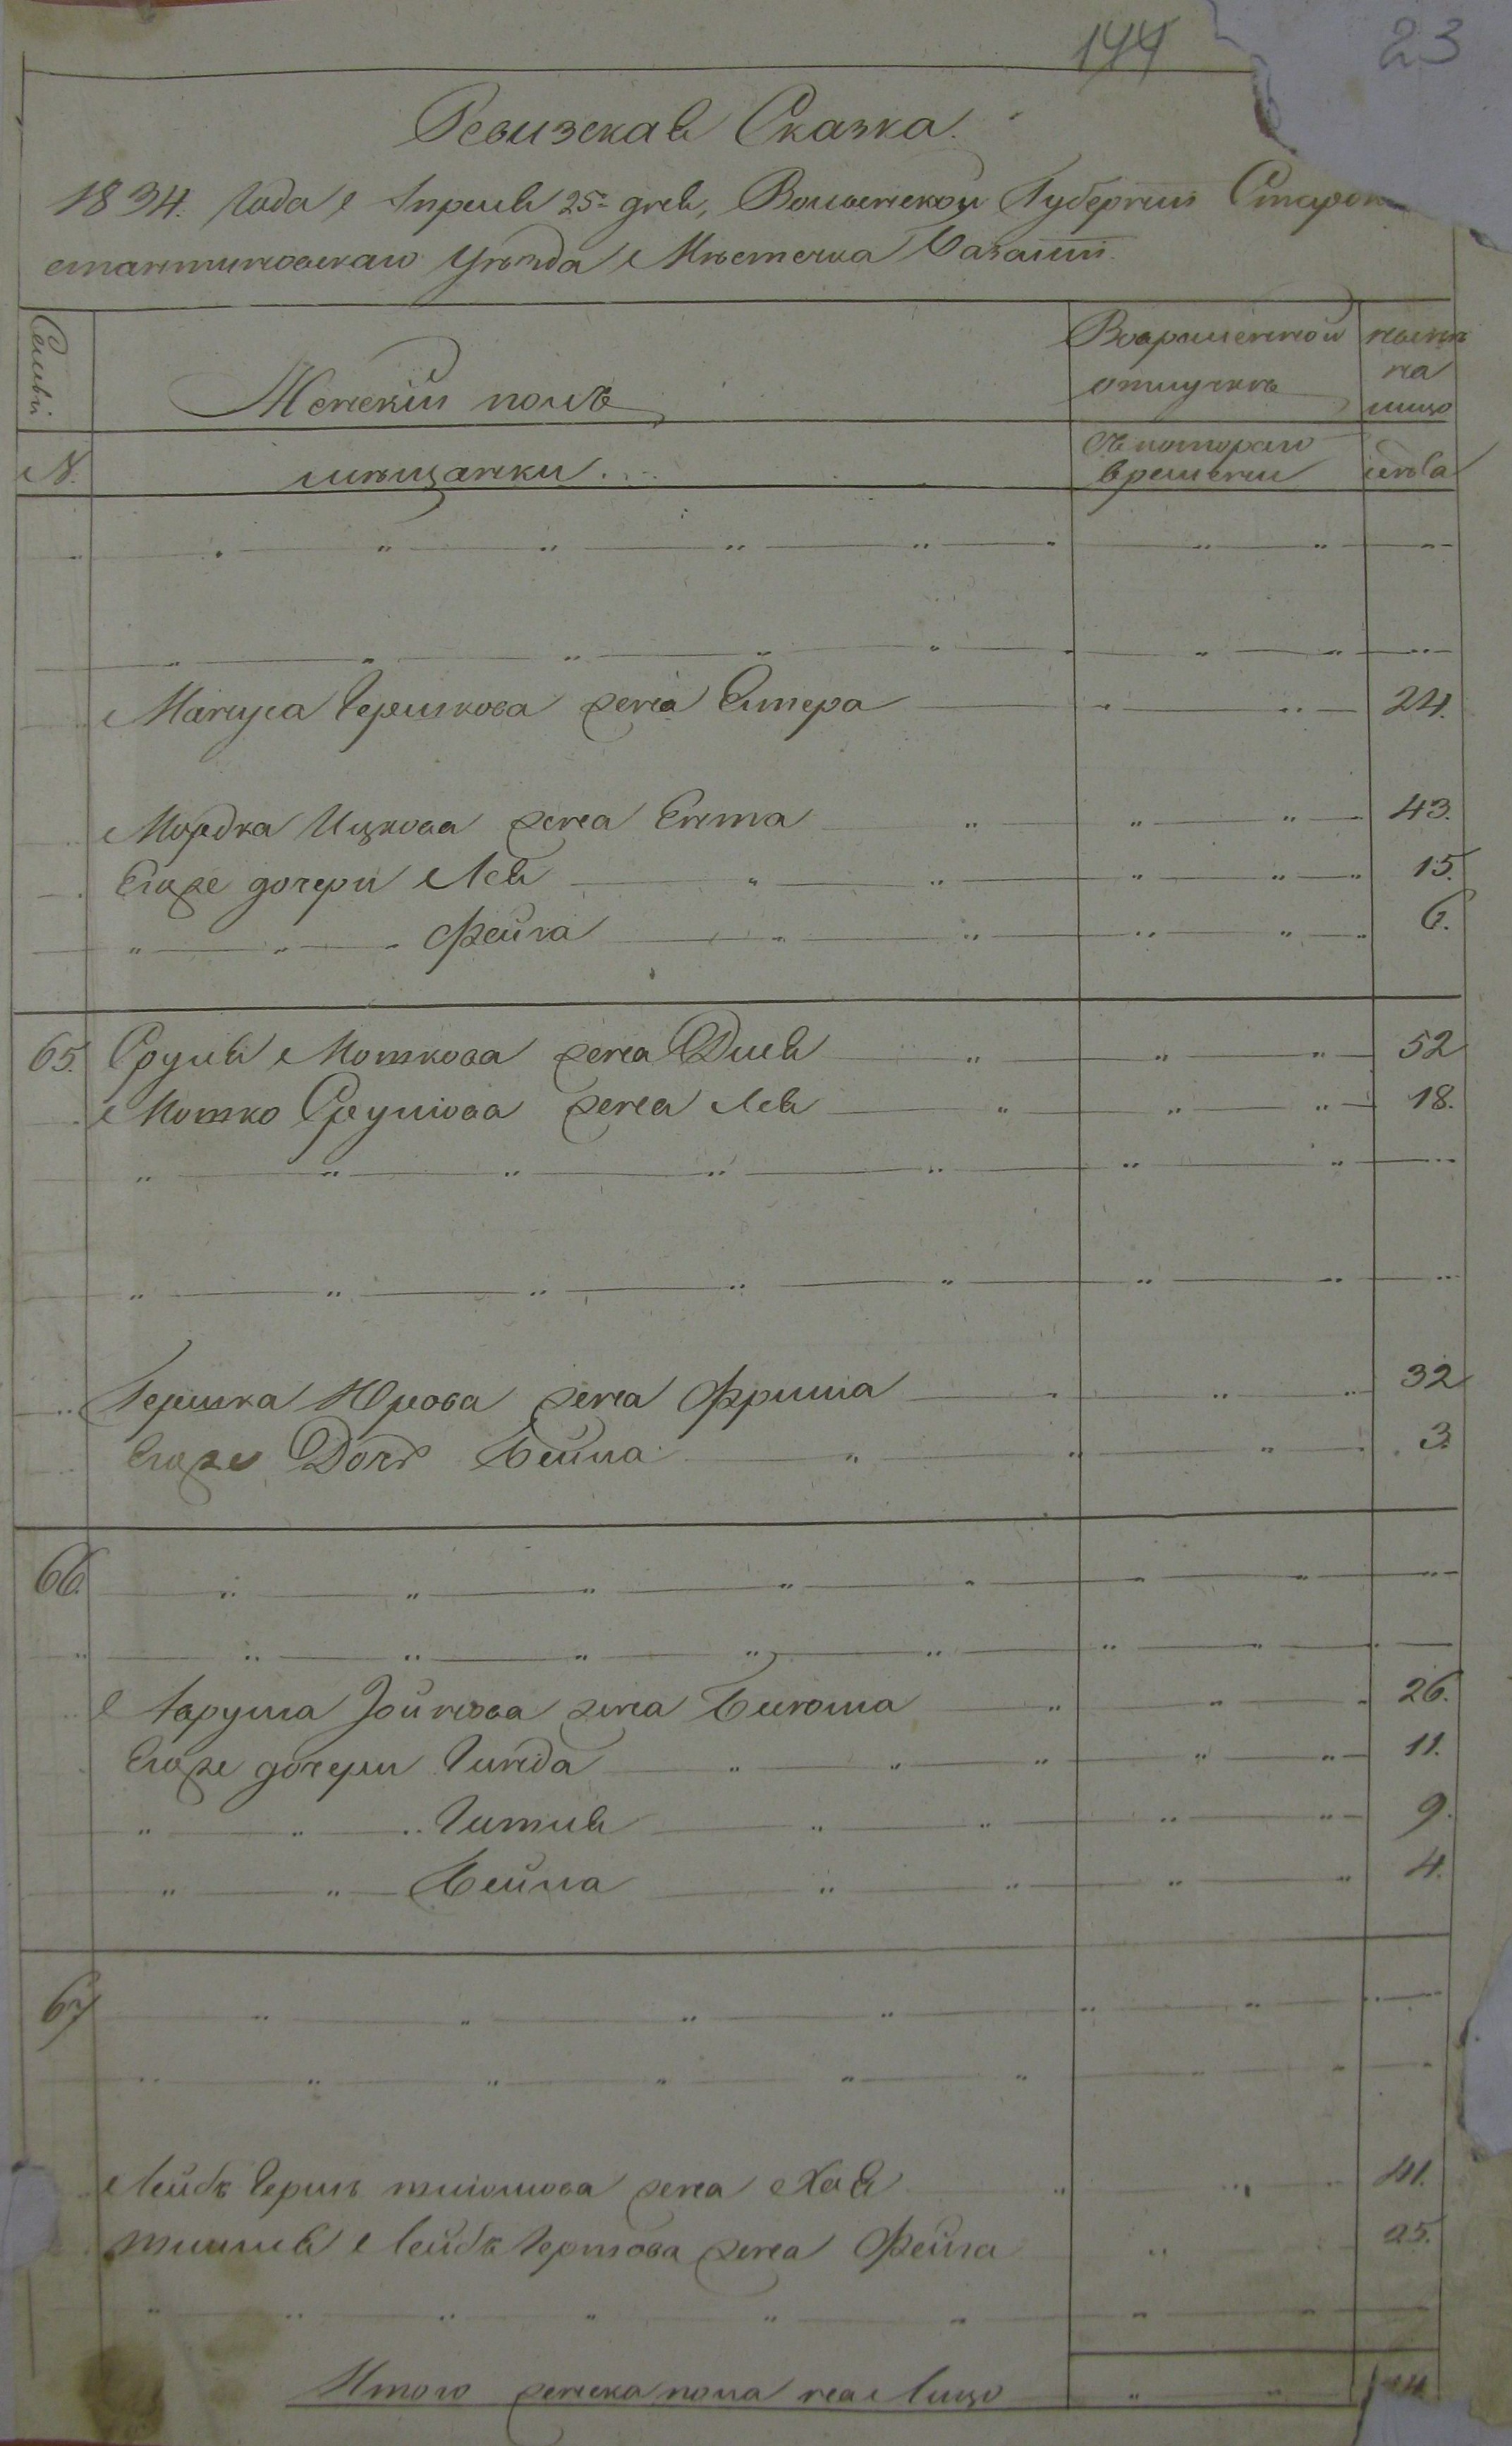 144 23
Ревизская Сказка.
1834. Года Апреля 25го дня, Волынской Губернии Старокон
стантиновскаго Уѣзда Мѣстечка Базалии.
Семьи
Женскій полъ
Во временной отлучкѣ
нынѣ на лицо
№.
мѣщанки.
Съ котораго времени
лѣта
Мануса Гершкова жена Естера 24.
Мордка Ицкова жена Ента 43.
Егоже дочери Лея 15.
Фейга 6.
65. Сруля Мошкова жена Двея 52
Мошко Срулiова жена Лея 18.
Гершка Юрова жена Фрима 32
Егоже Дочь Бейла 3.
66.
Аарума Зойнова жена Бигома 26.
Егоже дочери Гинда 11.
Гитля 9.
Бейла 4.
67
Лейбъ Гершъ жена Хая 41.
Лейбъ Гершова жена Фейга 25.
Итого женска пола на Лицо 14